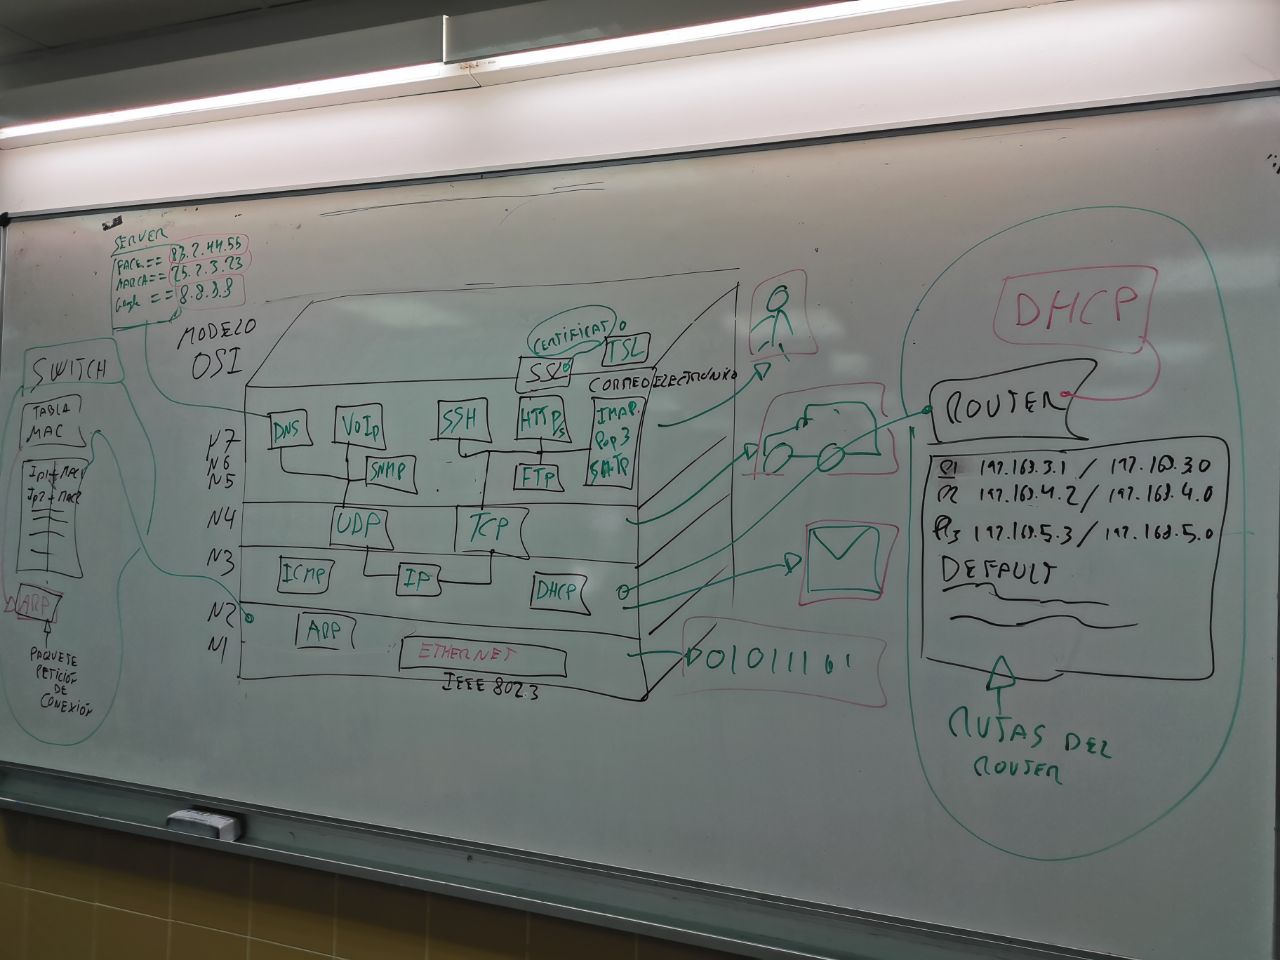 SERVER
FACE == 83.2.44.55
MARCA == 25.2.3.23
Google == 8.8.8.8
MODELO
OSI
SWITCH
TABLA
MAC
IP1 MAC1
IP2 MAC2
ARP
PAQUETE
PETICIÓN
DE
CONEXIÓN
CERTIFICADO
SSL
TSL
CORREO ELECTRONICO
N7
N6
N5
DNS
VoIp
SNMP
SSH
HTTP/s
FTP
IMAP.
Pop3
SMTP
N4
UDP
TCP
N3
ICMP
IP
DHCP
N2
N1
ARP
ETHERNET
IEEE 802.3
01011101
DHCP
ROUTER
R1 192.168.3.1 / 192.168.3.0
R2 192.168.4.2 / 192.168.4.0
R3 192.168.5.3 / 192.168.5.0
DEFAULT
RUTAS DEL
ROUTER